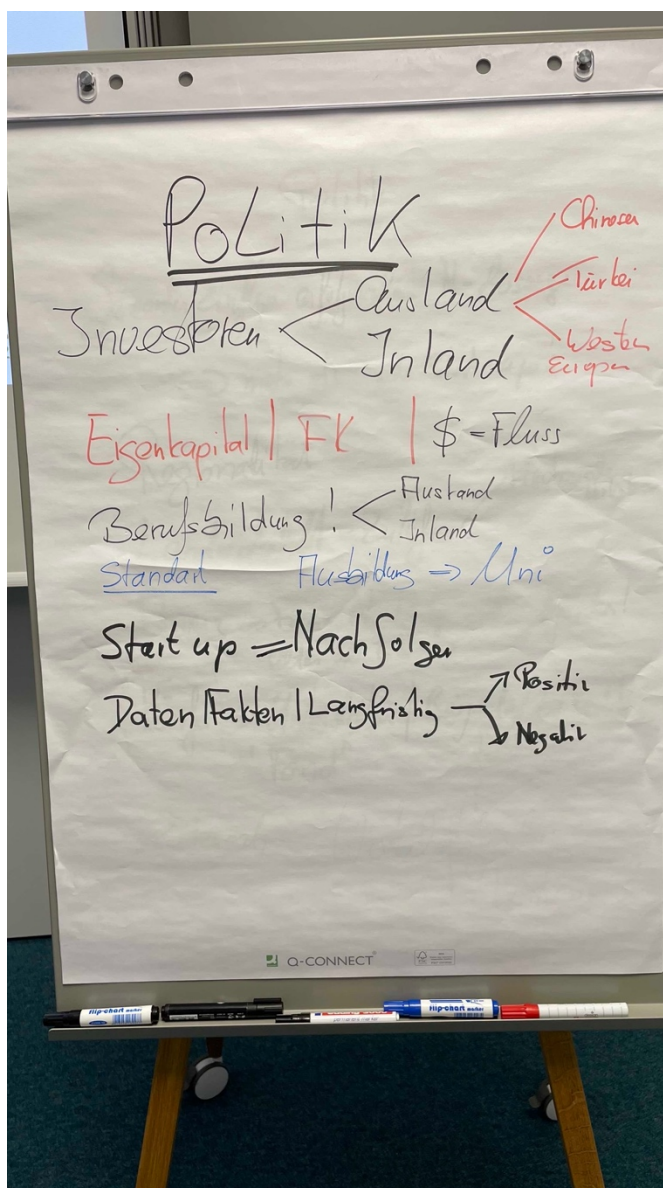 PoLitiK
Investoren < Ausland
Inland
Chinesen
Türkei
Westen
Europa
Eigenkapital | FK | $-Fluss
Berufsbildung ! < Ausland
Inland
Standart Ausbildung => Uni
Start up = Nachfolger
Daten | Fakten | Langfristig
Positiv
Negativ
Q-CONNECT
flip-chart marker
flip-chart marker